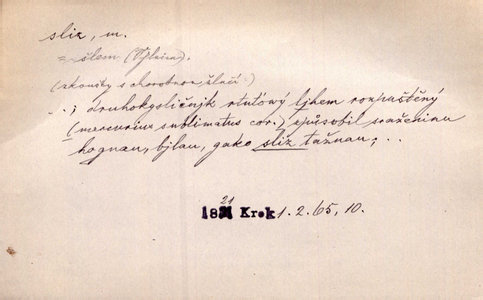 sliz, m.
= šlem (Výživa).
(zkoušky s chorobnou žlučí:)
...; druhokysličnjk rtutowý ljhem rozpuštěný
(mercurius sublimatus cor.) způsobil sraženinu
hognau, bjlau, gako sliz tažnau; ..
1821 Krok 1. 2. 65, 10.